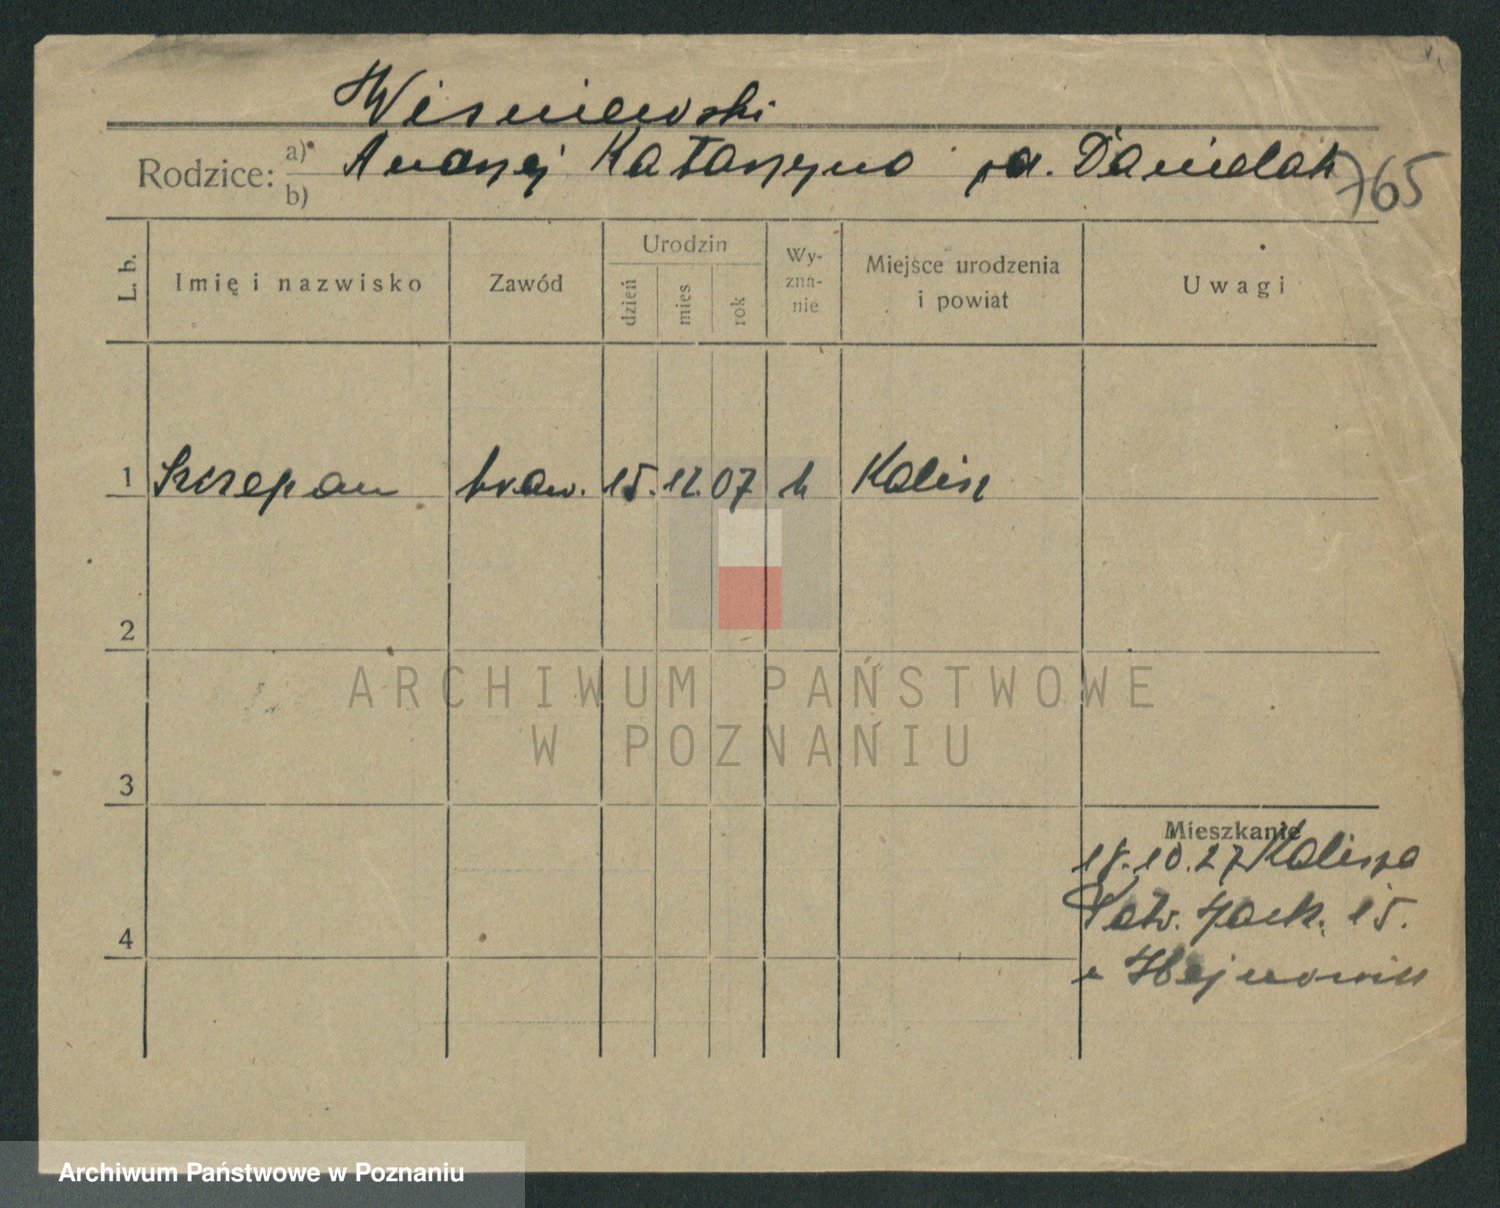 Wisniewski
Rodzice: a) b) Andrzej Katarzyna Danielak
765
L. b.
Imię i nazwisko
Zawód
Urodzin
dzień
mies
rok
Wy-
zna-
nie
Miejsce urodzenia
i powiat
Uwagi
1 Szczepan kraw. 15. 12. 07 k Kalisz
2
3
4
Mieszkanie
18.10.27 Kalisza
15.
ARCHIWUM PAŃSTWOWE
W POZNANIU
Archiwum Państwowe w Poznaniu